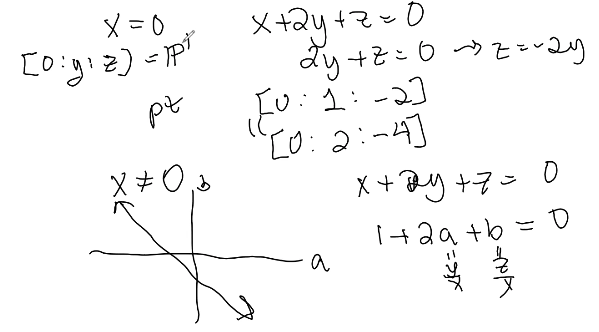 x = 0
[0:y:z] = ℙ¹
pt
x+2y+z=0
2y+z=0 → z=-2y
[0:1:-2]
"
[0:2:-4]
x ≠ 0
b
a
x+2y+z= 0
1+2a+b=0
" "
y/x z/x